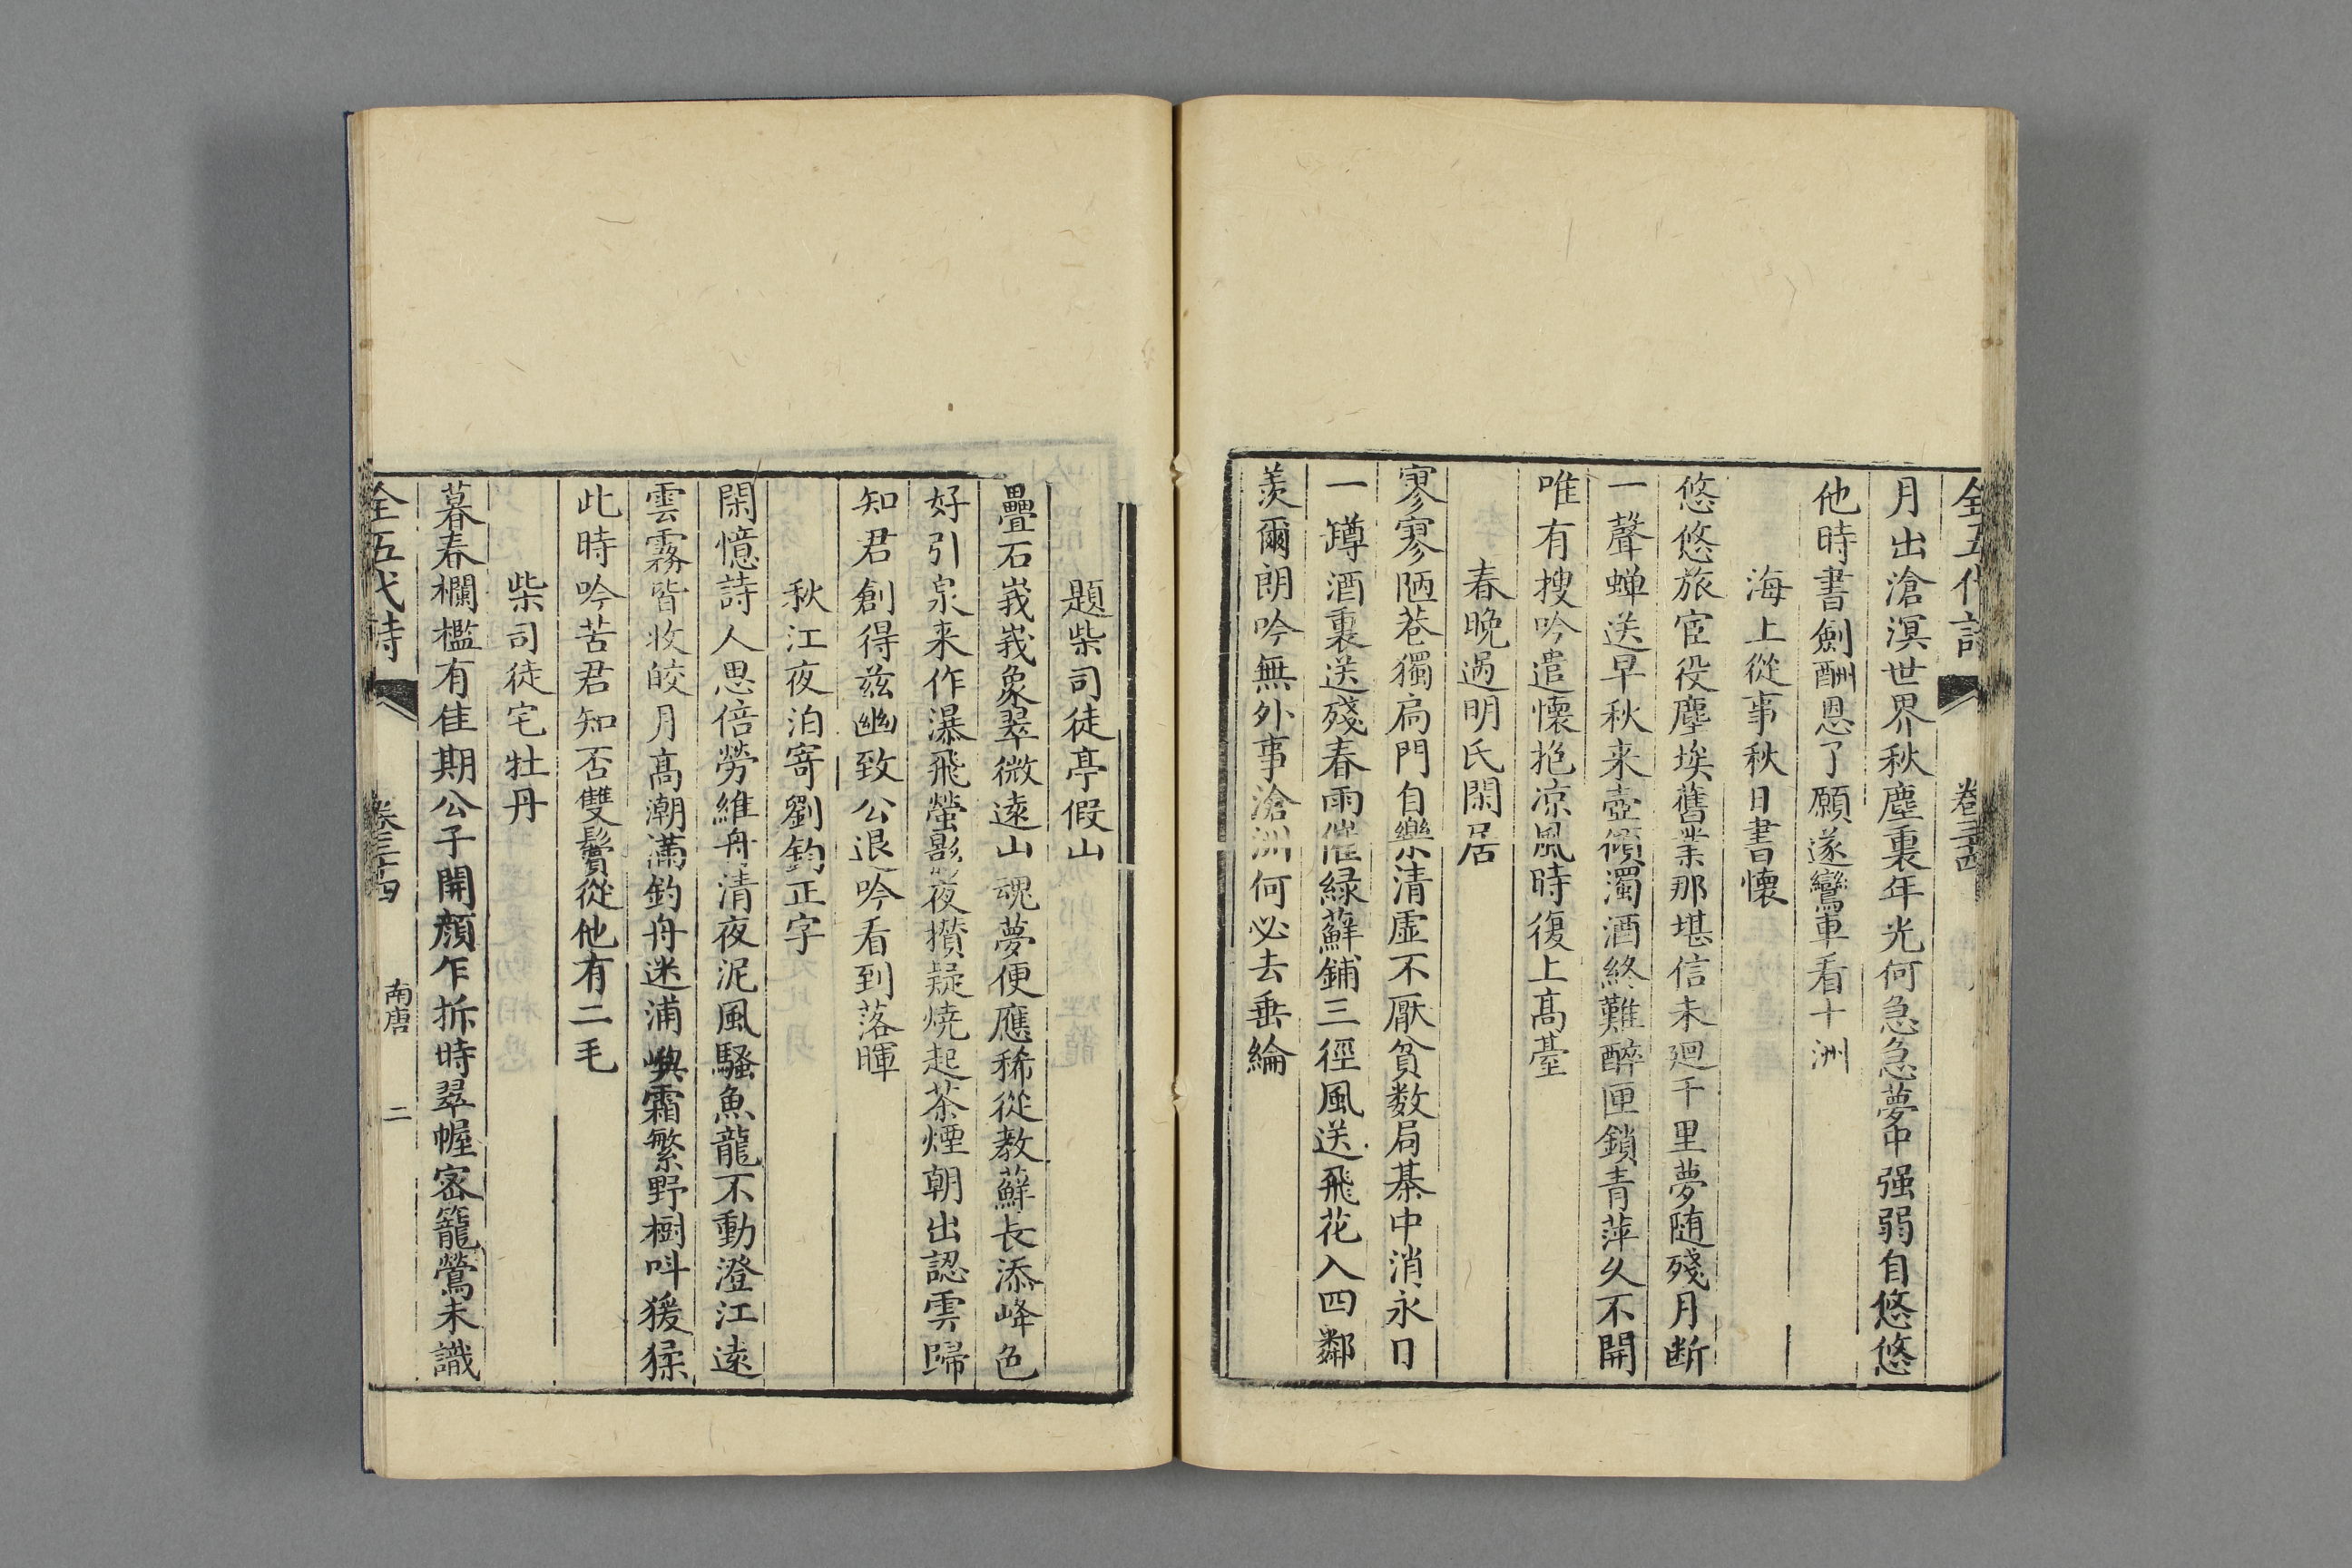 全五代詩 卷三十四
月出滄溟世界秋塵裏年光何急急夢中强弱自悠悠
他時書劍酬恩了願逐鸞車看十洲
海上從事秋日書懷
悠悠旅宦役塵埃舊業那堪信未迴千里夢随殘月断
一聲蝉送早秋来壺傾濁酒終難醉匣鎖青萍久不開
唯有搜吟遣懷抱凉風時復上髙臺
春晚過明氏閑居
寥寥陋巷獨扃門自樂清虚不厭貧数局棊中消永日
一罇酒裏送殘春雨催緑蘚鋪三徑風送飛花入四鄰
羡爾朗吟無外事滄洲何必去垂綸
題柴司徒亭假山
疊石峩峩象翠微逺山魂夢便應稀從教蘚長添峰色
好引泉来作瀑飛螢影夜攢疑焼起茶煙朝出認雲歸
知君創得兹幽致公退吟看到落暉
秋江夜泊寄劉鈞正字
閑憶詩人思倍勞維舟清夜泥風騷魚龍不動澄江逺
雲霧皆收皎月髙潮滿釣舟迷浦嶼霜繁野樹呌猨猱
此時吟苦君知否雙鬢從他有二毛
柴司徒宅牡丹
暮春欄檻有佳期公子開顔乍拆時翠幄宻籠鶯未識
全五代詩 卷三十四 南唐 二